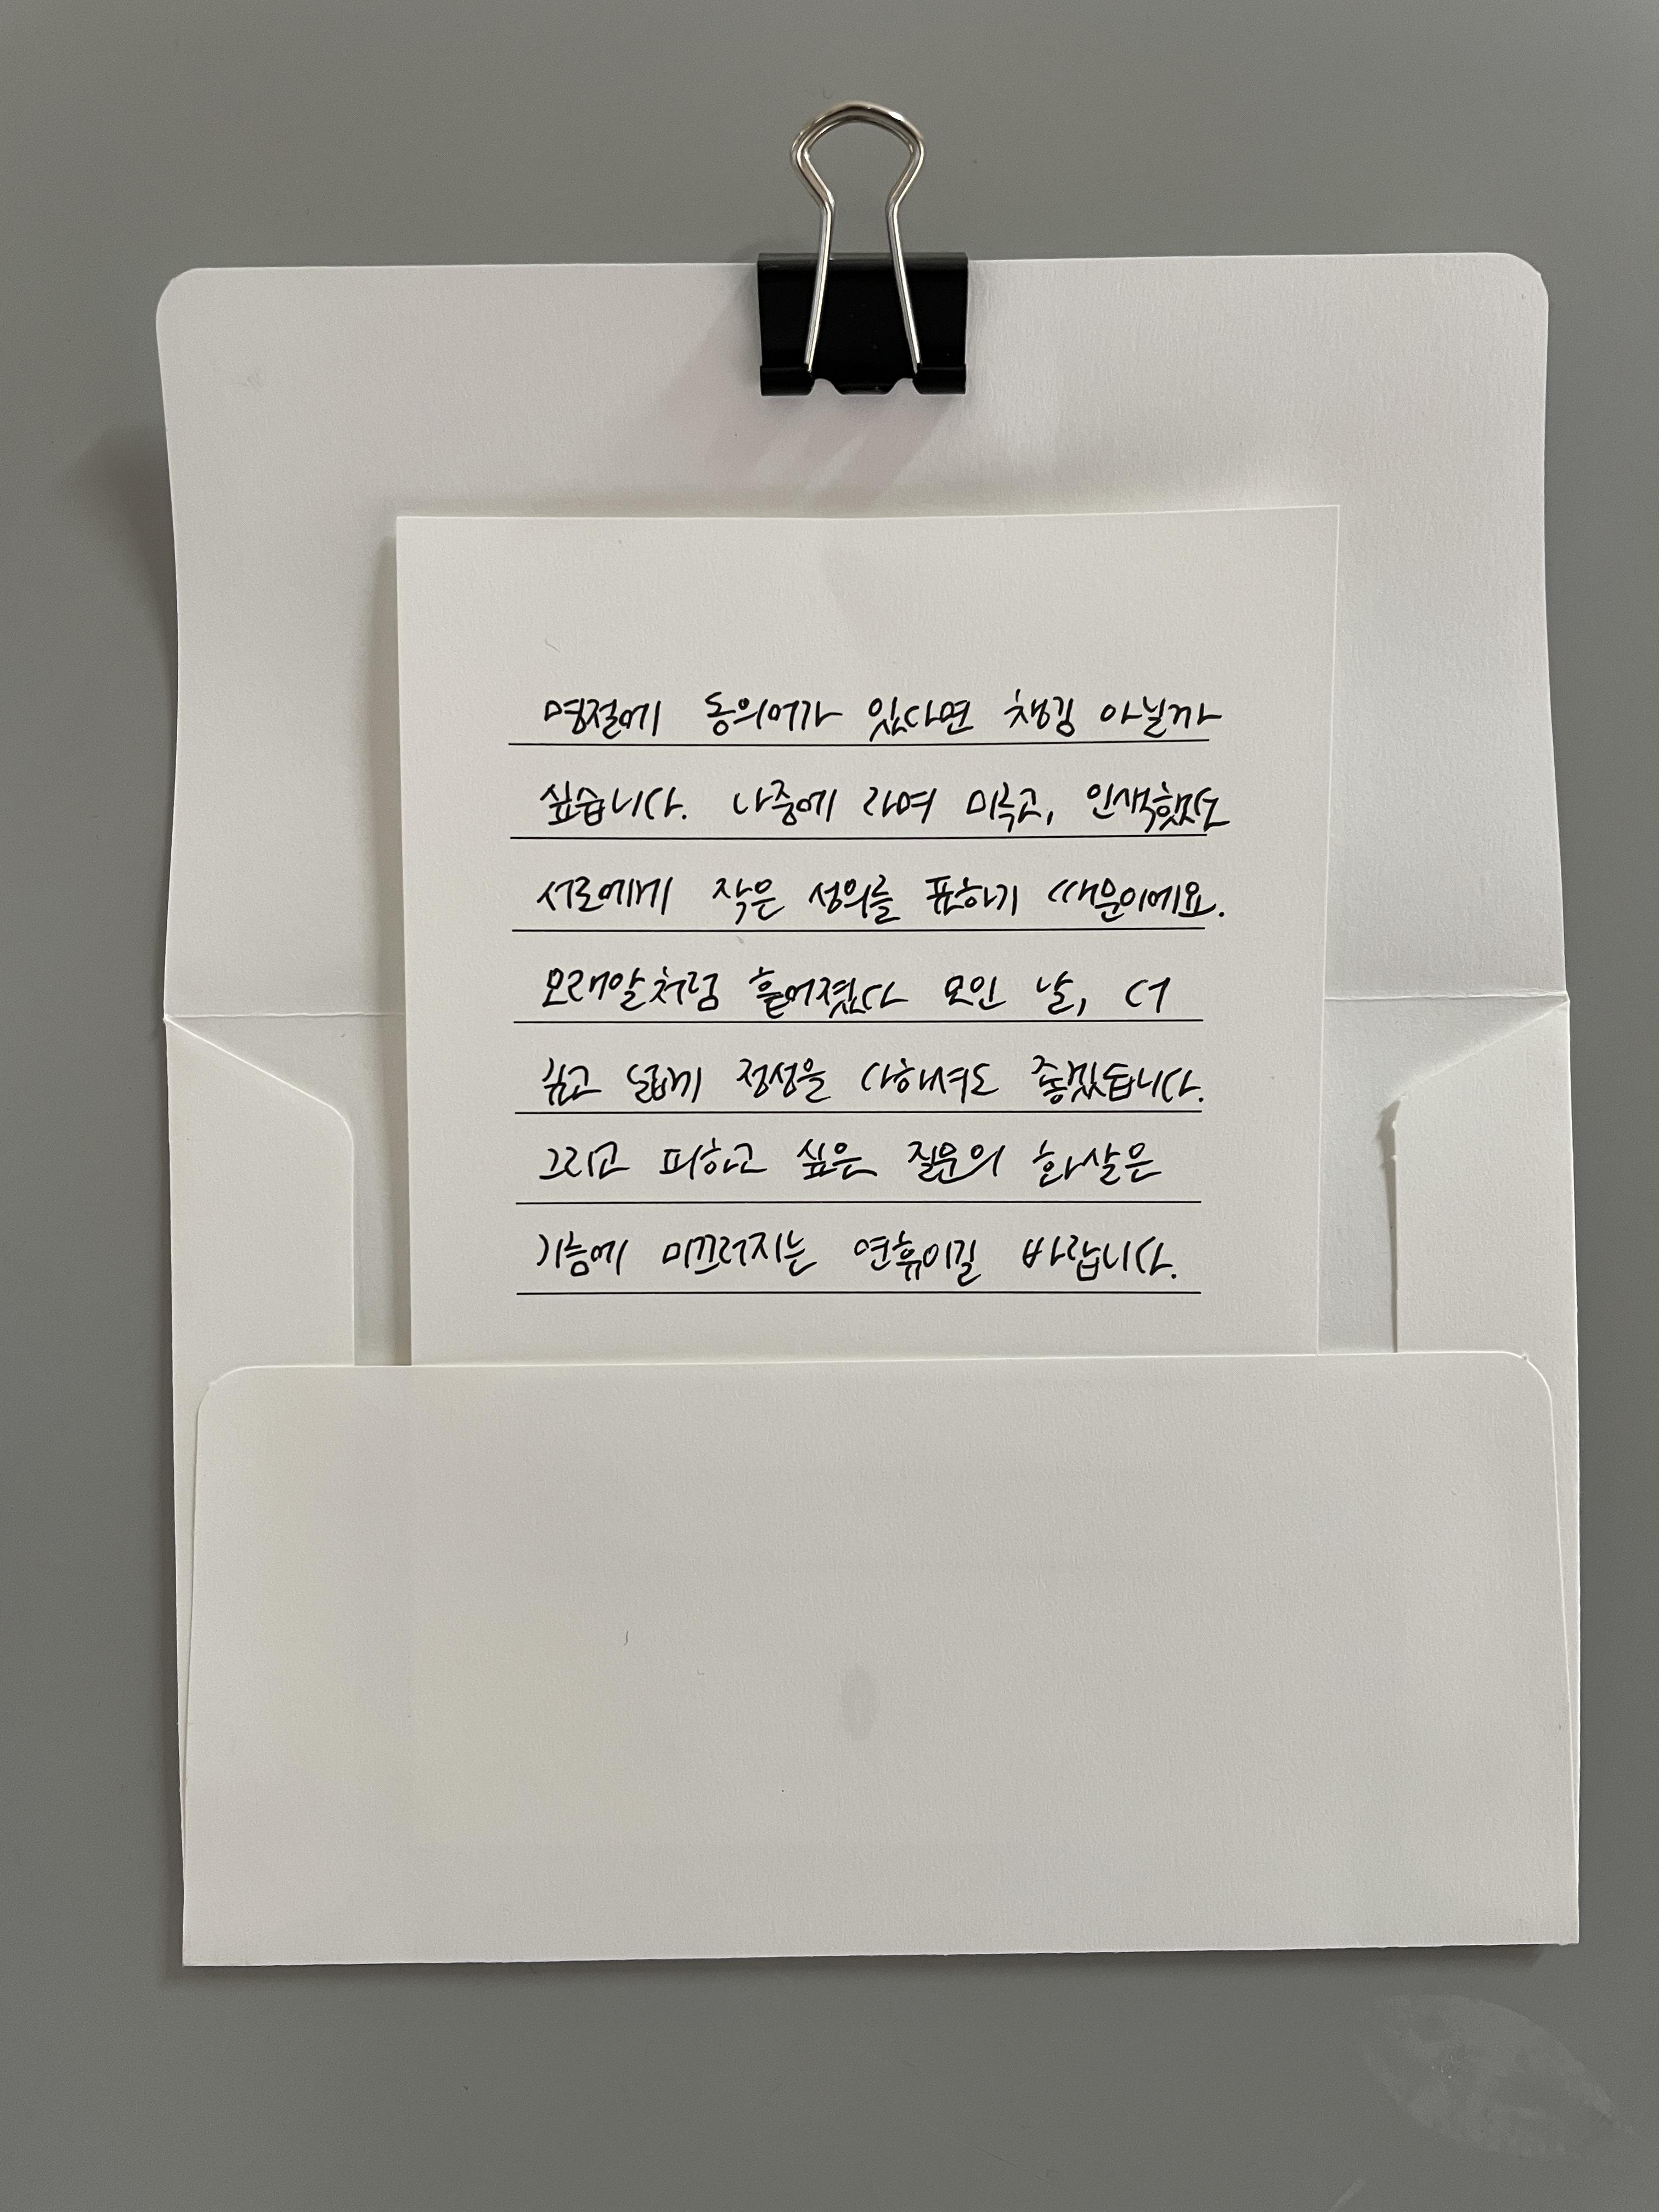 명절에 동의어가 있다면 챙김 아닐까
싶습니다. 나중에 라며 미루고, 인색했던
서로에게 작은 성의를 표하기 때문이에요.
모래알처럼 흩어졌다 모인 날, 더
깊고 넓게 정성을 다하셔도 좋겠습니다.
그리고 피하고 싶은 질문의 화살은
기름에 미끄러지는 연휴이길 바랍니다.